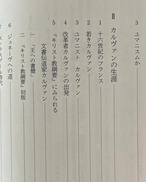 3 ユマニスムか
Ⅱ カルヴァンの生涯
1 十六世紀のフランス
2 若きカルヴァン
3 ユマニスト カルヴァン
4 改革者カルヴァンの出発
5 『キリスト教綱要』にみられる
文書伝道家カルヴァン
一 「王への書簡」
二 『キリスト教綱要』初版
6 ジュネーヴへの道